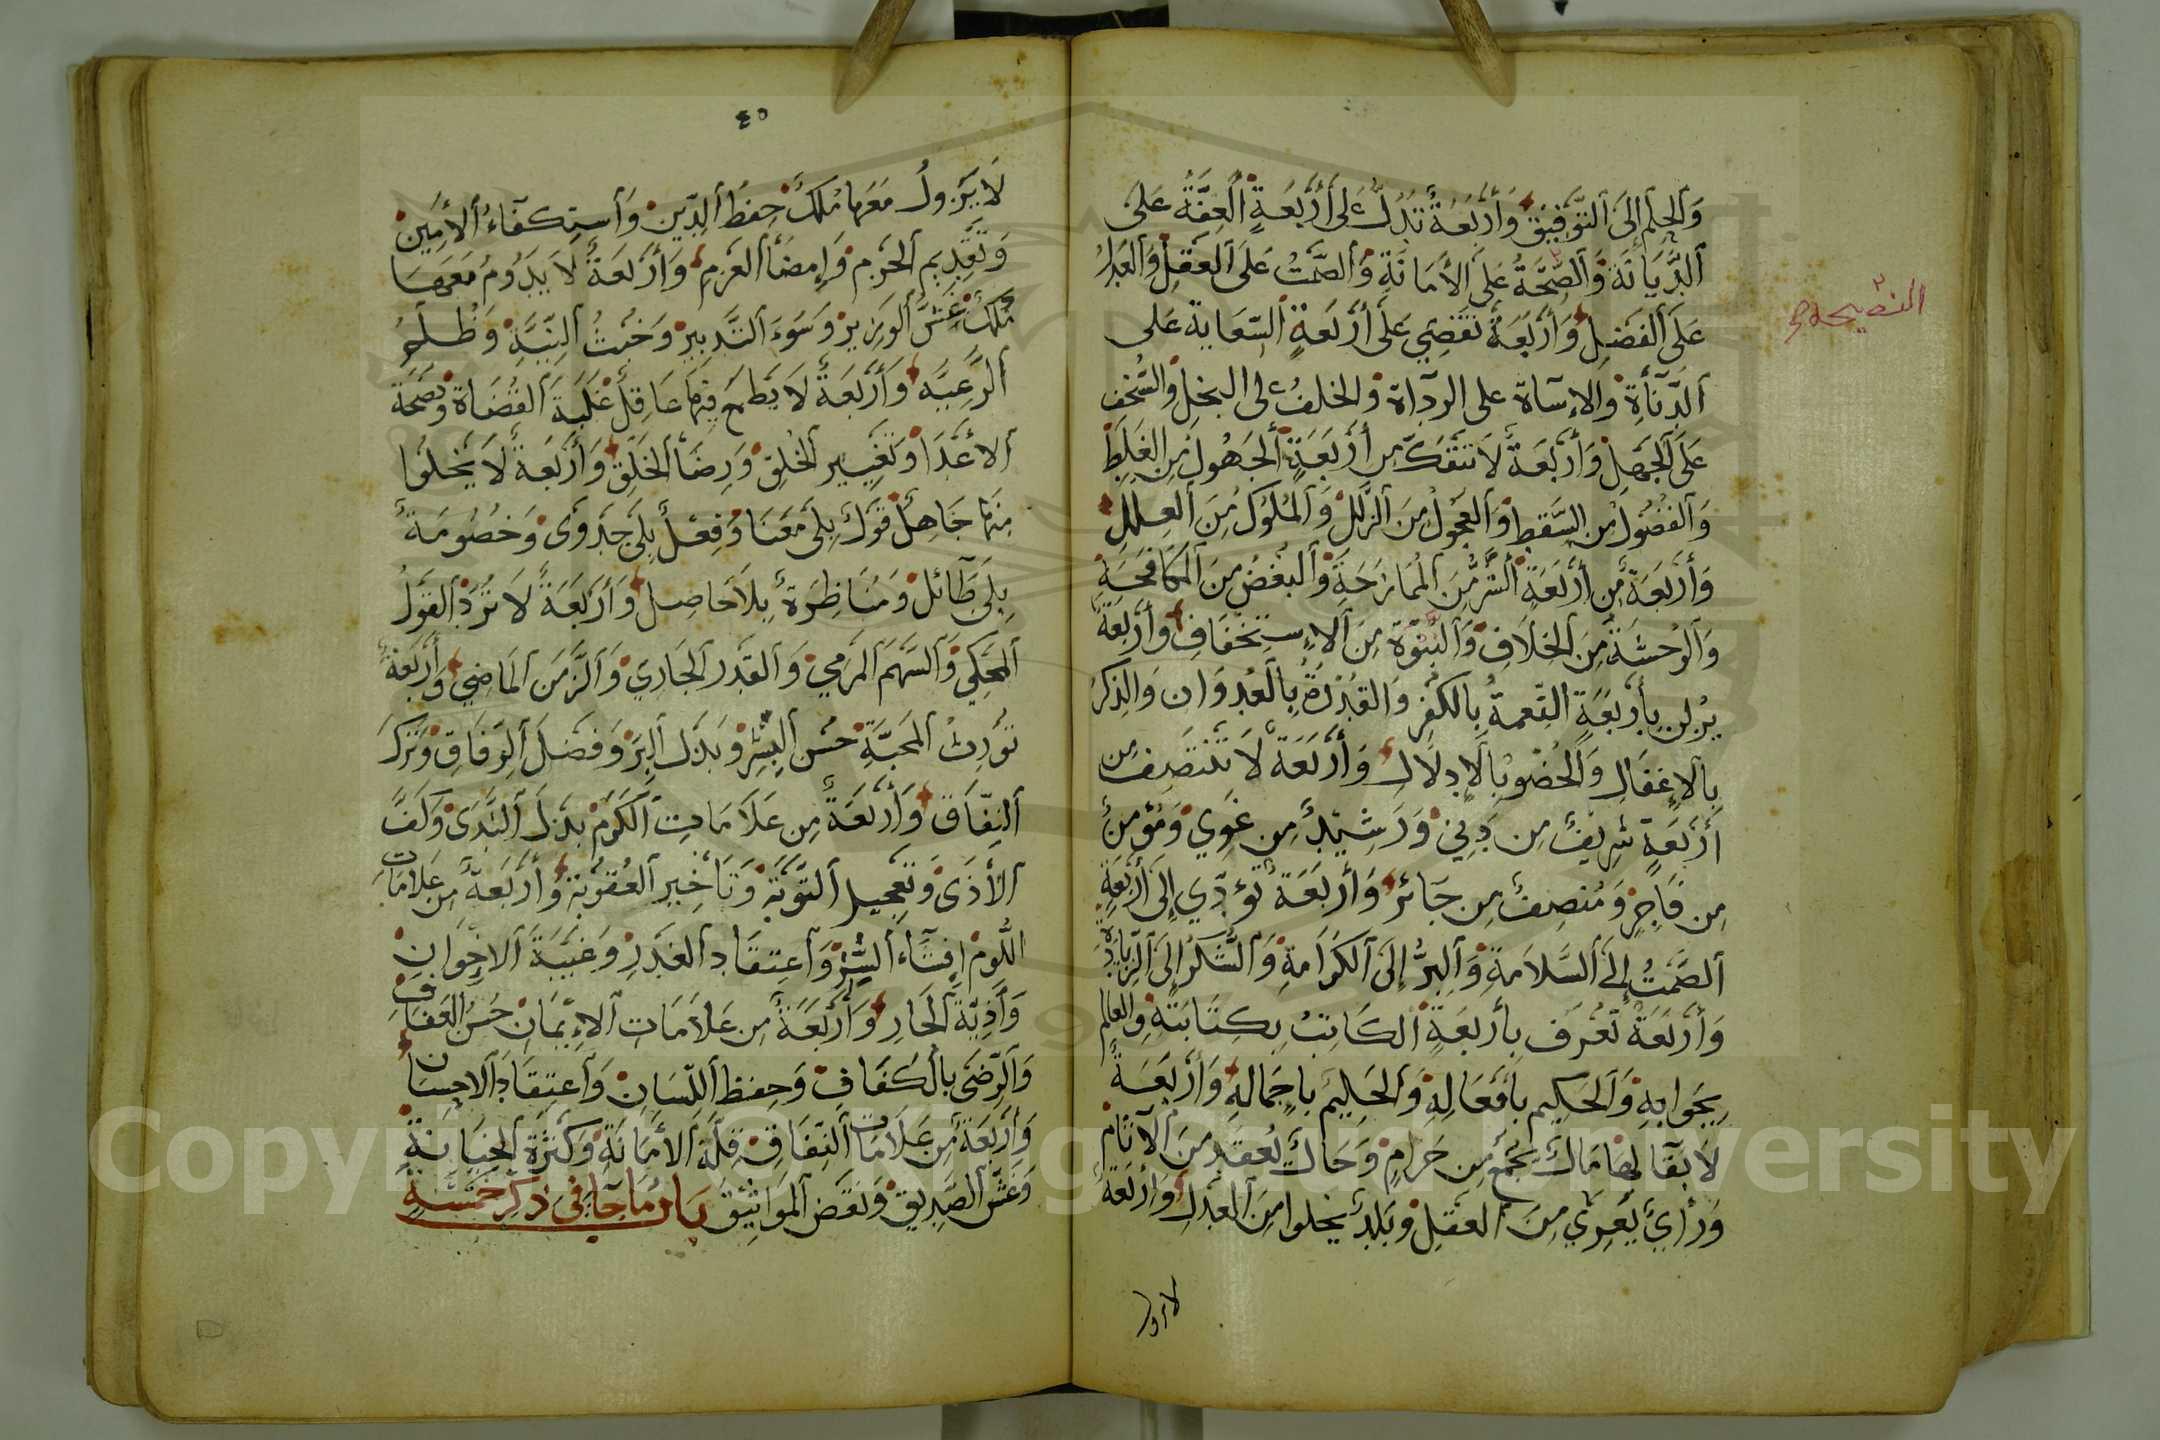 وَالحلم إلى التَّوفِيق وَأَرْبَعَةٌ تَدُلُّ عَلى أَرْبَعَةٍ العِفَّةُ عَلى
الدِّيَانَة وَالصِّحَّةُ عَلى الأَمَانَةِ وَالصَّمْتُ عَلَى العَقلِ وَالعَدلُ
عَلَى الفَضلِ وَأَرْبَعَةٌ تَقضِي عَلَى أَرْبَعَةٍ السّعَاية عَلى
الدَّنَأَةِ والإسآة على الردآة والخلفُ على البخل والسُّخف
عَلَى الجَهلِ وَأَرْبَعَةٌ لَا تَنفَكّ مِن أَرْبَعَةٍ الجَهُول مِنَ الغَلَطِ
وَالفضُولُ مِن السَّقطِ وَالعَجُولُ مِنَ الزَّلل وَالمُلوك مِنَ العِلل
وَأَرْبَعَةٌ مِن أَرْبَعَةٍ الشَّرُّ مِنَ المُمَازَحَةِ وَالبُغضُ مِنَ المَكَافَحَةِ
وَالوَحشَةُ مِنَ الخلَافِ وَالنُّبُوَّة مِنَ الإِستِخفَافِ وَأَرْبَعَةٌ
يزُلن بِأَرْبَعَةٍ النِّعمةُ بِالكُفرِ وَالقُدْرَةُ بِالعُدوَان وَالذِكرُ
بِالإغفَالِ وَالحُضوُ بِالإدلَال وَأَرْبَعَةٌ لَا تَنْتَصِفُ مِن
أَرْبَعَةٍ شَرِيفٌ مِن دَنِيّ وَرَشِيدٌ مِن غَوِي وَمُؤمنٌ
مِن فَاجِرٍ وَمُنصِفٌ مِن جَائرٍ وَأَرْبَعَةٌ تُؤَدِّي إِلَى أَرْبَعَةٍ
الصَّمتُ إلى السَّلَامَةِ وَالبِرُّ إلَى الكَرَامَةِ وَالشُّكرُ إلَى الزِّيَادَةِ
وَأَرْبَعَةٌ تُعرَف بِأَربَعَةٍ الكَاتِبُ بِكِتَابَتِهِ وَالعالِم
بِجَوابِهِ وَالحَكِيم بأفعَالِهِ وَالحَلِيم باحتِمَالهِ وَأَرْبَعَةٌ
لَا بَقَا لهَا مَالٌ يُجمَع مِن حَرامٍ وَحَالٌ يُعقَد مِنَ الآثَام
وَرَأيٌ يَعرِي مِنَ العقلِ وَبَلدٌ يخلوا مِنَ العَدل وَأَرْبَعَةٌ
لا يزول
٤٥
لَا يَزولُ مَعَها مُلكٌ حِفظُ الدِّين وَاستِكفَاءُ الأَمِين
وَتَقدِيم الحَزم وَإِمضَا العَزمِ وَأَرْبَعَةٌ لَا يَدُومُ مَعَهَا
مُلكٌ غِشُّ الوَزِير وَسُوء التَّدبِير وَخُبثُ النِّيَّةِ وَظُلمُ
الرَّعِيَّه وَأَرْبَعَةٌ لَا يَطمَع فِيهَا عَاقِلٌ غَلَبَة القُضَاة وَنُصحَة
الأعدَا وَتَغيِير الخُلق وَرِضَا الخَلق وَأَرْبَعَةٌ لَا يخلُوا
مِنهَا جَاهِلٌ قَول بِلَى مَعنَا وَفِعلٌ بِلَى جَدوَى وَخصُومَةٌ
بِلَى طَآئل وَمُنَاظِرَةٌ بِلَا حَاصِل وَأَرْبَعَةٌ لَا تُرَدّ القَولُ
المَحكِي وَالسَّهمُ المَرمي وَالقَدر الجَارِي وَالزَّمَن المَاضِي وَأَرْبَعَةٌ
تُورِثُ المَحَبَّة حُسن البِشر وَبَذل البِرّ وَفضل الوِفَاقِ وَتَركَ
النِّفَاق وَأَرْبَعَةٌ مِن عَلَامَات الكَرَم بذل النَّدَى وَكَفّ
الأَذَى وَتعجيل التَّوبَة وَتَأخِير العُقُوبَة وَأَرْبَعَةٌ مِن عَلَامَات
اللّوم إفشَاءُ السِّرّ وَاعتِقَاد الغَدرِ وَغِيبَة الإخوَان
وَأَذِيّة الجَار وَأَرْبَعَةٌ مِن عَلَامَات الإيمَان حُسن العَفَافِ
وَالرّضَى بالكفَافِ وَحِفظ اللّسَان وَاعتِقَاد الاحسَان
وَأَرْبَعَةٌ مِن عَلَامَات النِّفَاق قِلَّة الأَمَانَة وَكَثرَة الخِيَانَةِ
وَغشّ الصّدِيق وَنَقض المَوَاثِيق باب مَا جَا في ذكر خمسة
Copyright © King Saud University